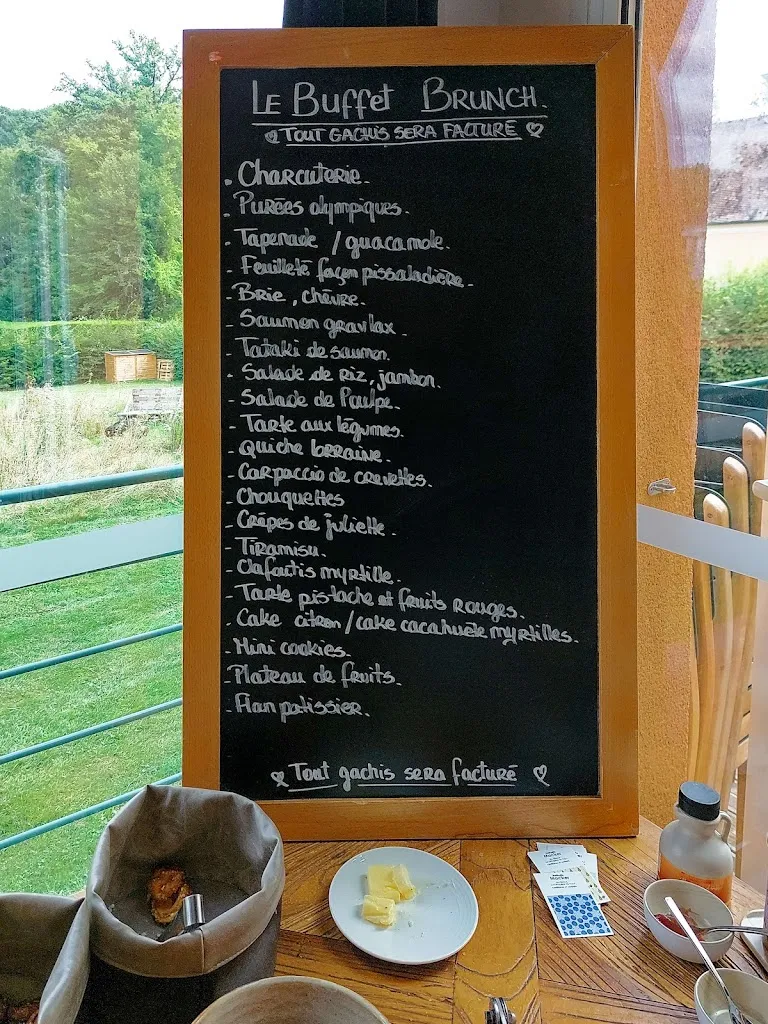 LE Buffet BRUNCH.
TOUT GACHIS SERA FACTURÉ
. Charcuterie.
. Purées olympiques.
- Tapenade / guacamole.
- Feuilleté façon pissaladière.
- Brie, chèvre.
- Saumon gravlax.
- Tataki de saumon.
- Salade de Riz, jambon.
- Salade de Poulpe.
- Tarte aux légumes.
- Quiche lorraine.
- Carpaccio de crevettes.
- Chouquettes
- Crêpes de juliette.
- Tiramisu.
- Clafoutis myrtille.
- Tarte pistache et fruits rouges.
- Cake citron / cake cacahuète myrtilles.
- Mini cookies.
- Plateau de fruits.
- Flan patissier.
Tout gachis sera facturé